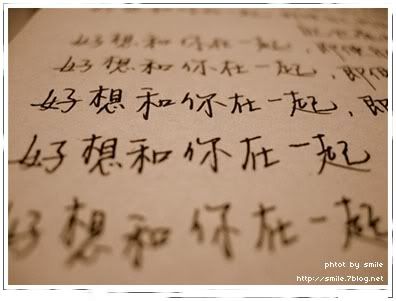 好想和你在一起，即使
好想和你在一起，即使
好想和你在一起，即
好想和你在一起
好想和你在一起
phtot by smile
http://smile.7blog.net